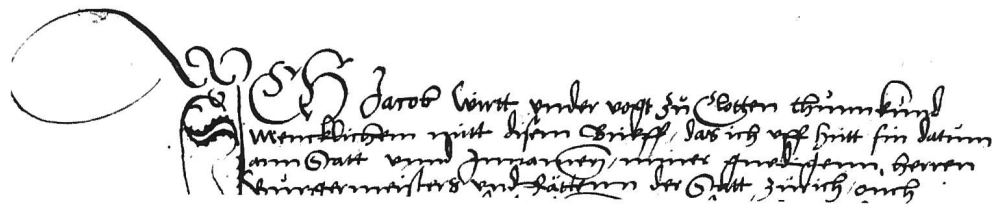 ICH Jacob Wirtt vnder vogt zů Clotten thůnn kund
mencklichem mitt disem Brieff, das ich vff hütt sin datum
ann Statt vnnd Innamen, miner gnedigenn herren
Burgermeisters vnd Rättenn der Statt Zürich, ouch